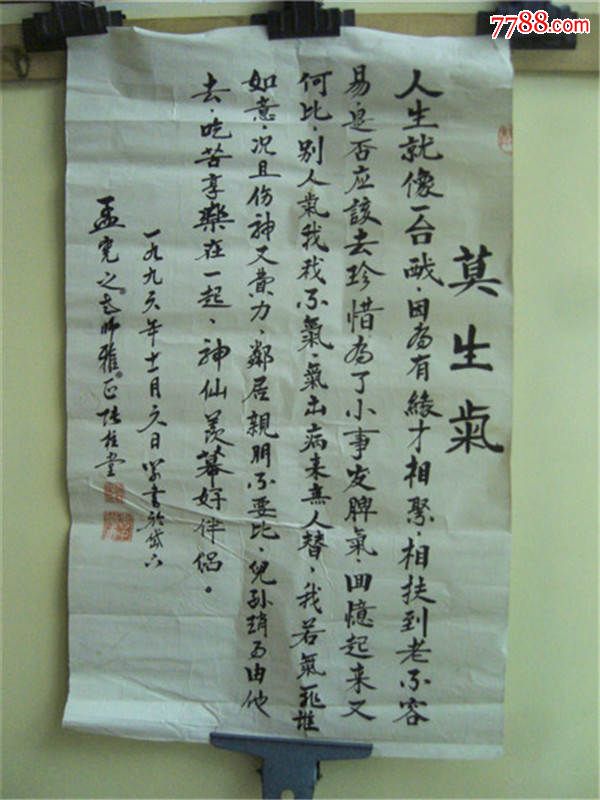 7788.com
莫生氣
人生就像一台戲．因為有緣才相聚．相扶到老不容
易．是否应該去珍惜為了小事发脾氣．回憶起来又
何比．别人氣我我不氣．氣出病来無人替．我若氣死誰
如意．况且伤神又費力．鄰居親朋不要比．兒孫琐事由他
去．吃苦享樂在一起．神仙羨慕好伴侣。
一九九六年十一月六日 学書於岱下
孟宪之老师雅正 張桂堂